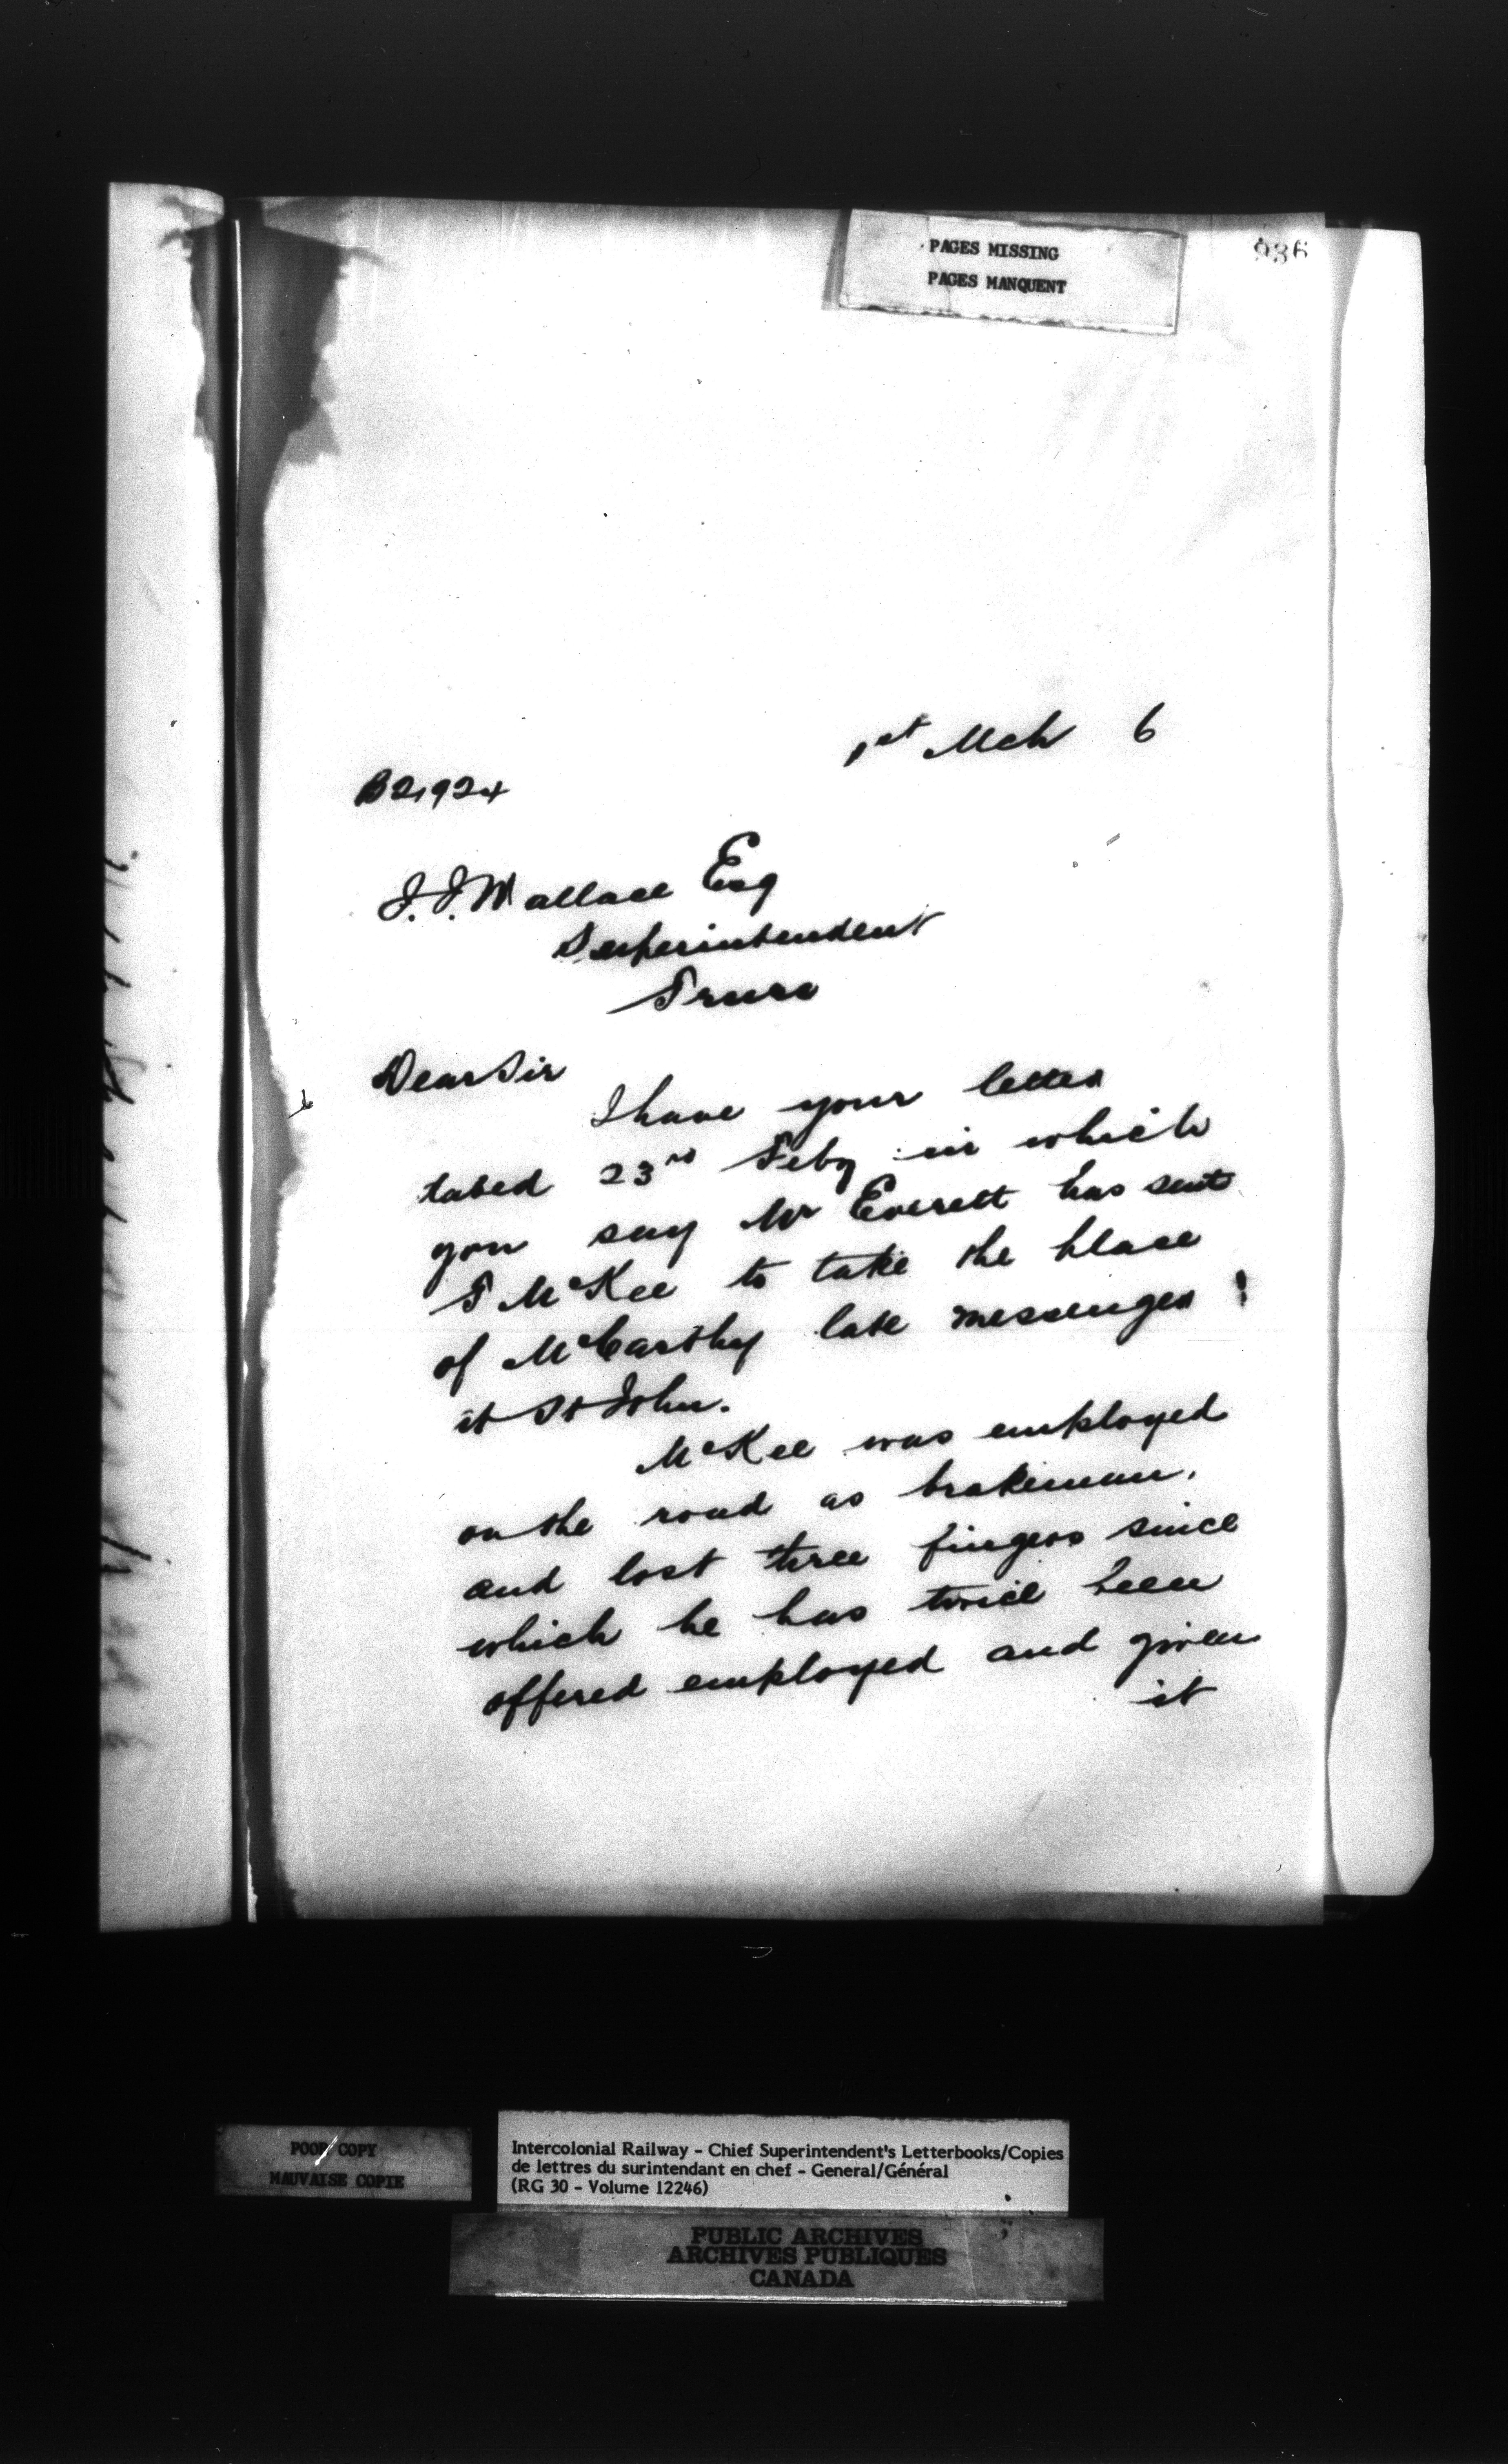 PAGES MISSING
PAGES MANQUENT
936
1st Mch 6
B21924
J.J. Wallace Esq
Superintendent
Truro
Dear Sir
I have your letter
dated 23rd Feby in which
you say Mr Everett has sent
T McKee to take the place
of McCarthy late messenger
at St John.
McKee was employed
on the road as brakeman,
and lost three fingers since
which he has twice been
offered employed and given
it
POOR COPY
MAUVAISE COPIE
Intercolonial Railway - Chief Superintendent's Letterbooks/Copies
de lettres du surintendant en chef - General/Général
(RG 30 - Volume 12246)
PUBLIC ARCHIVES
ARCHIVES PUBLIQUES
CANADA